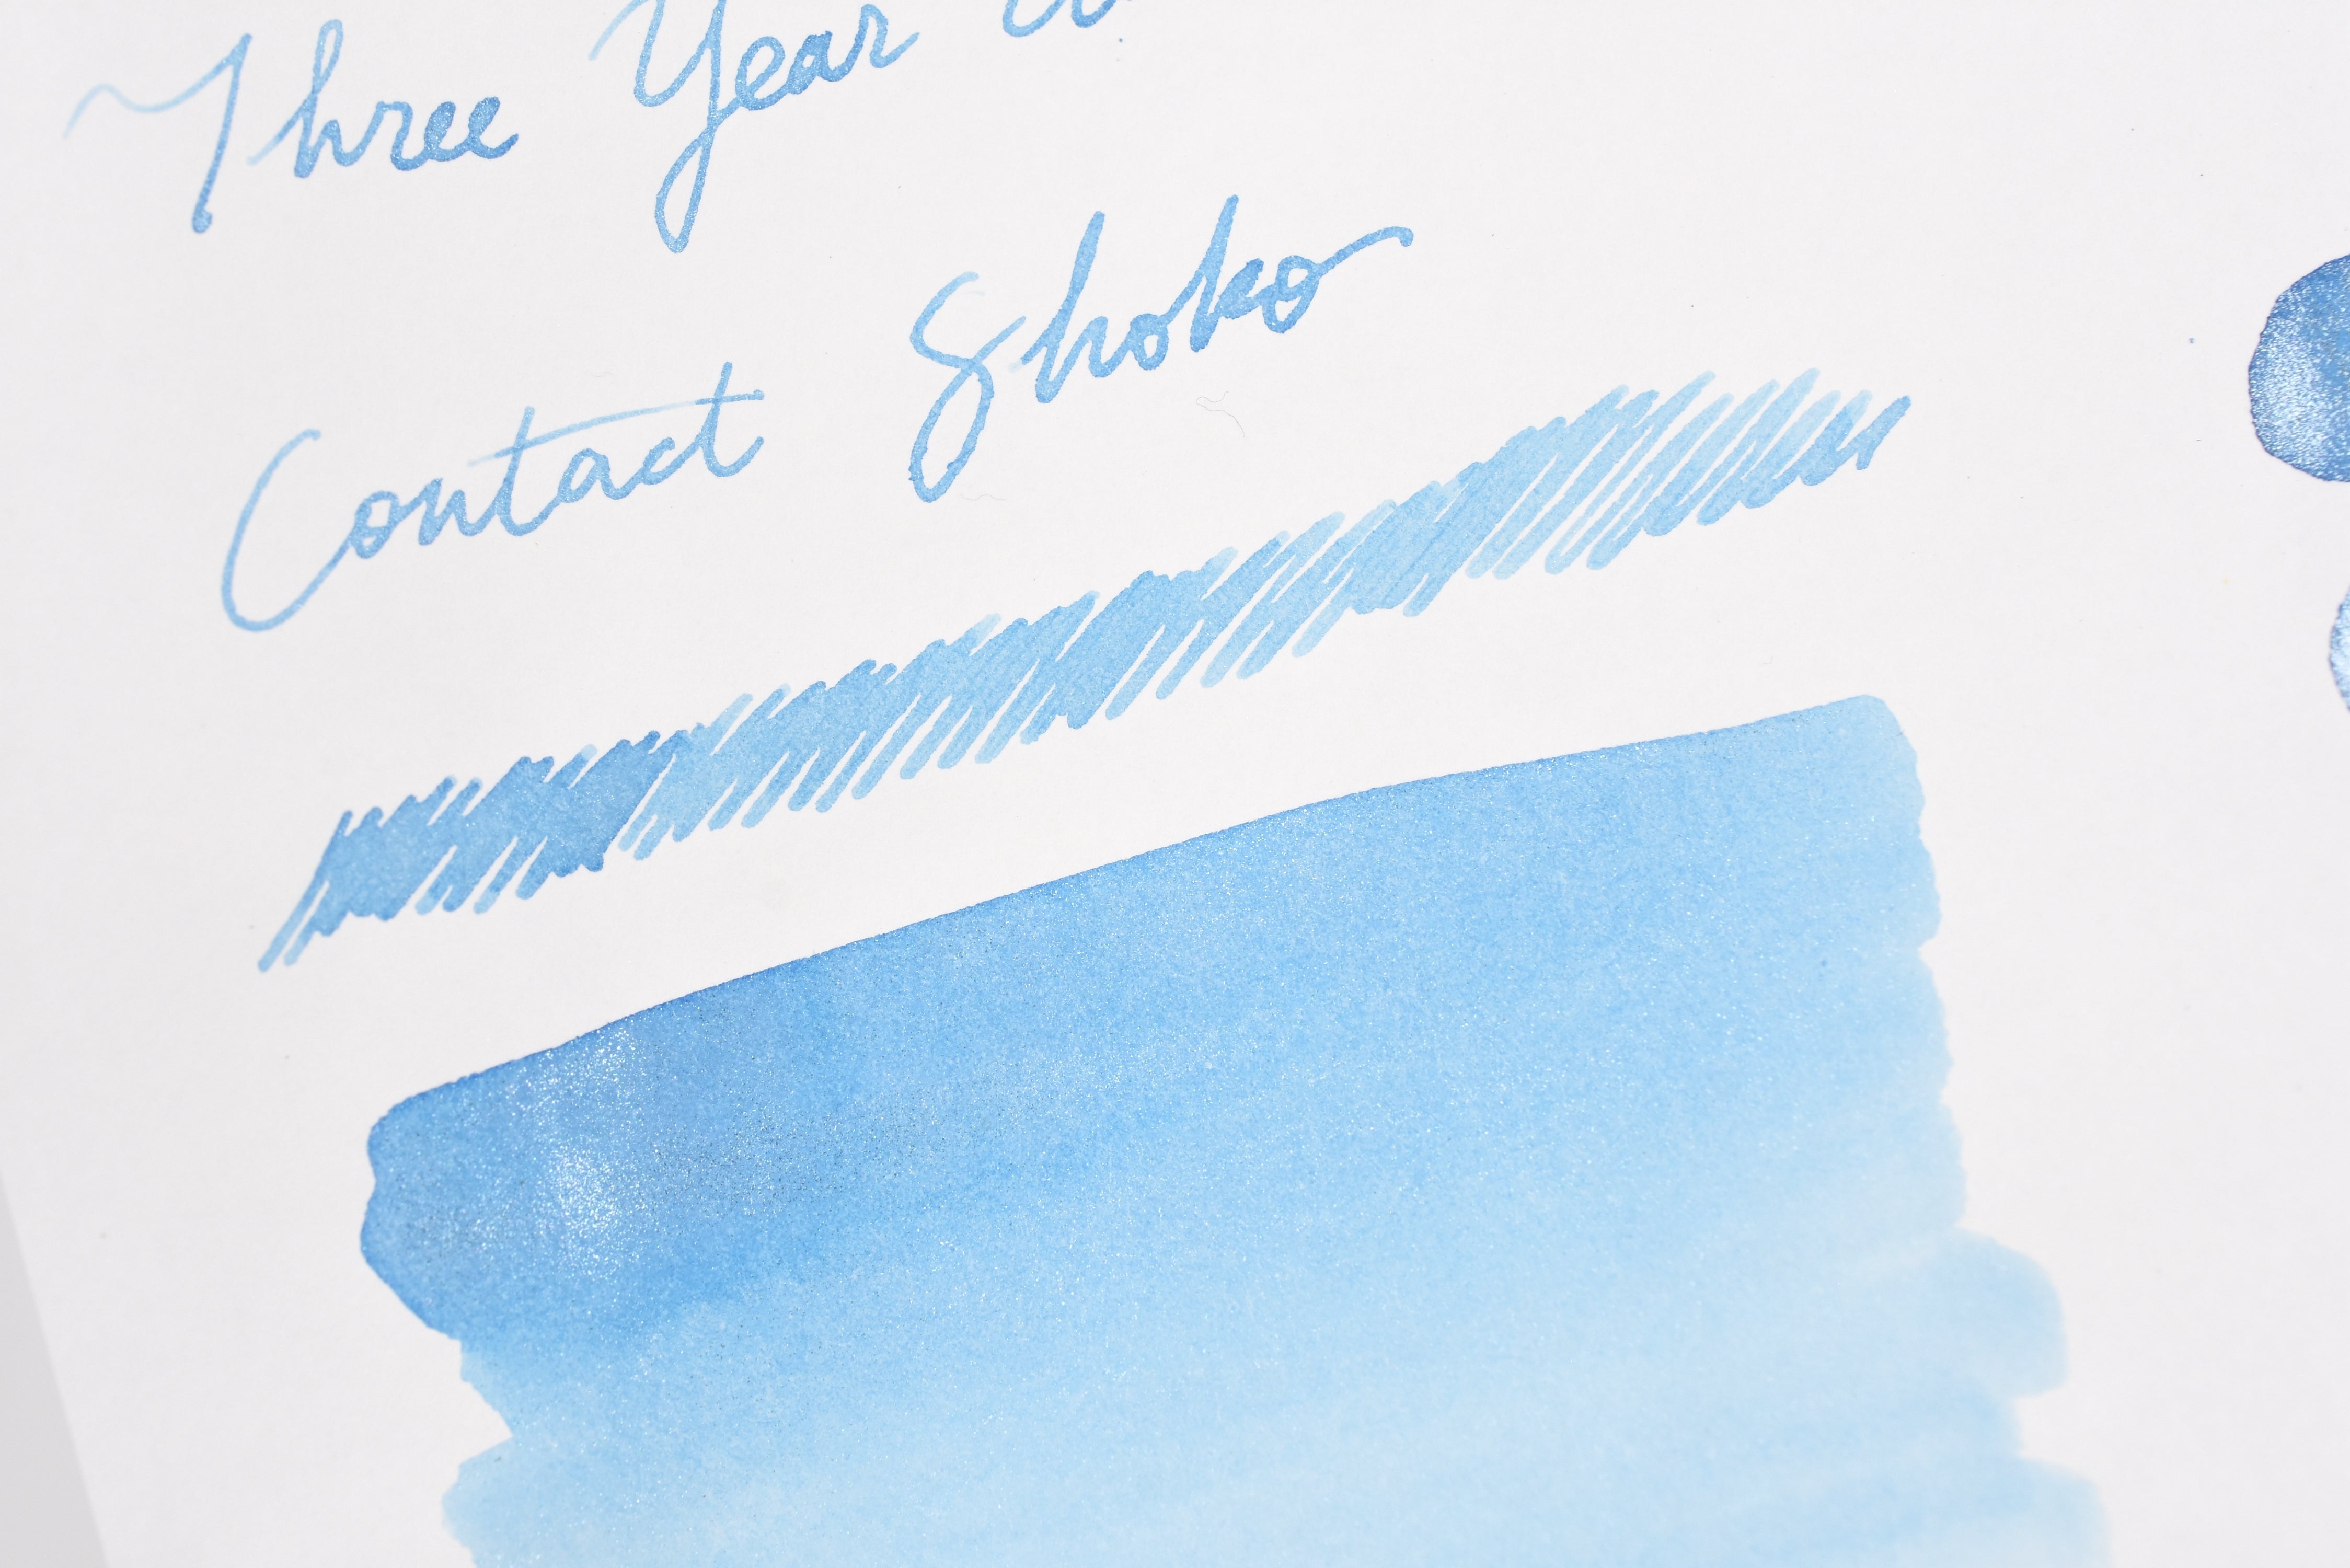 Three Year
Contact Shoko